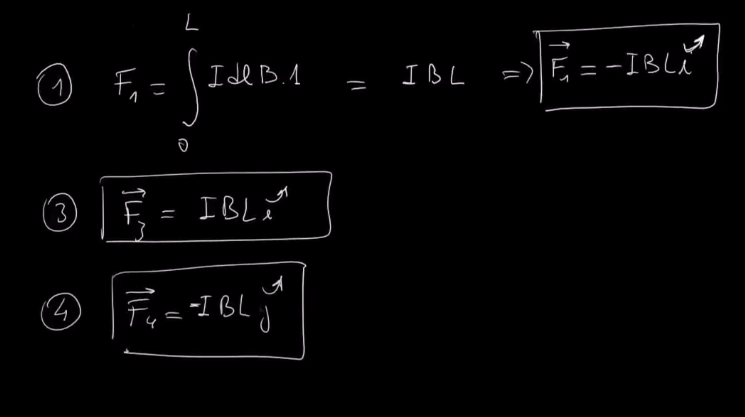 ① F₁ = ∫₀ᴸ I dl B.1 = I B L ⇒ F⃗₁ = -IBL i⃗
③ F⃗₃ = IBL i⃗
④ F⃗₄ = -IBL j⃗